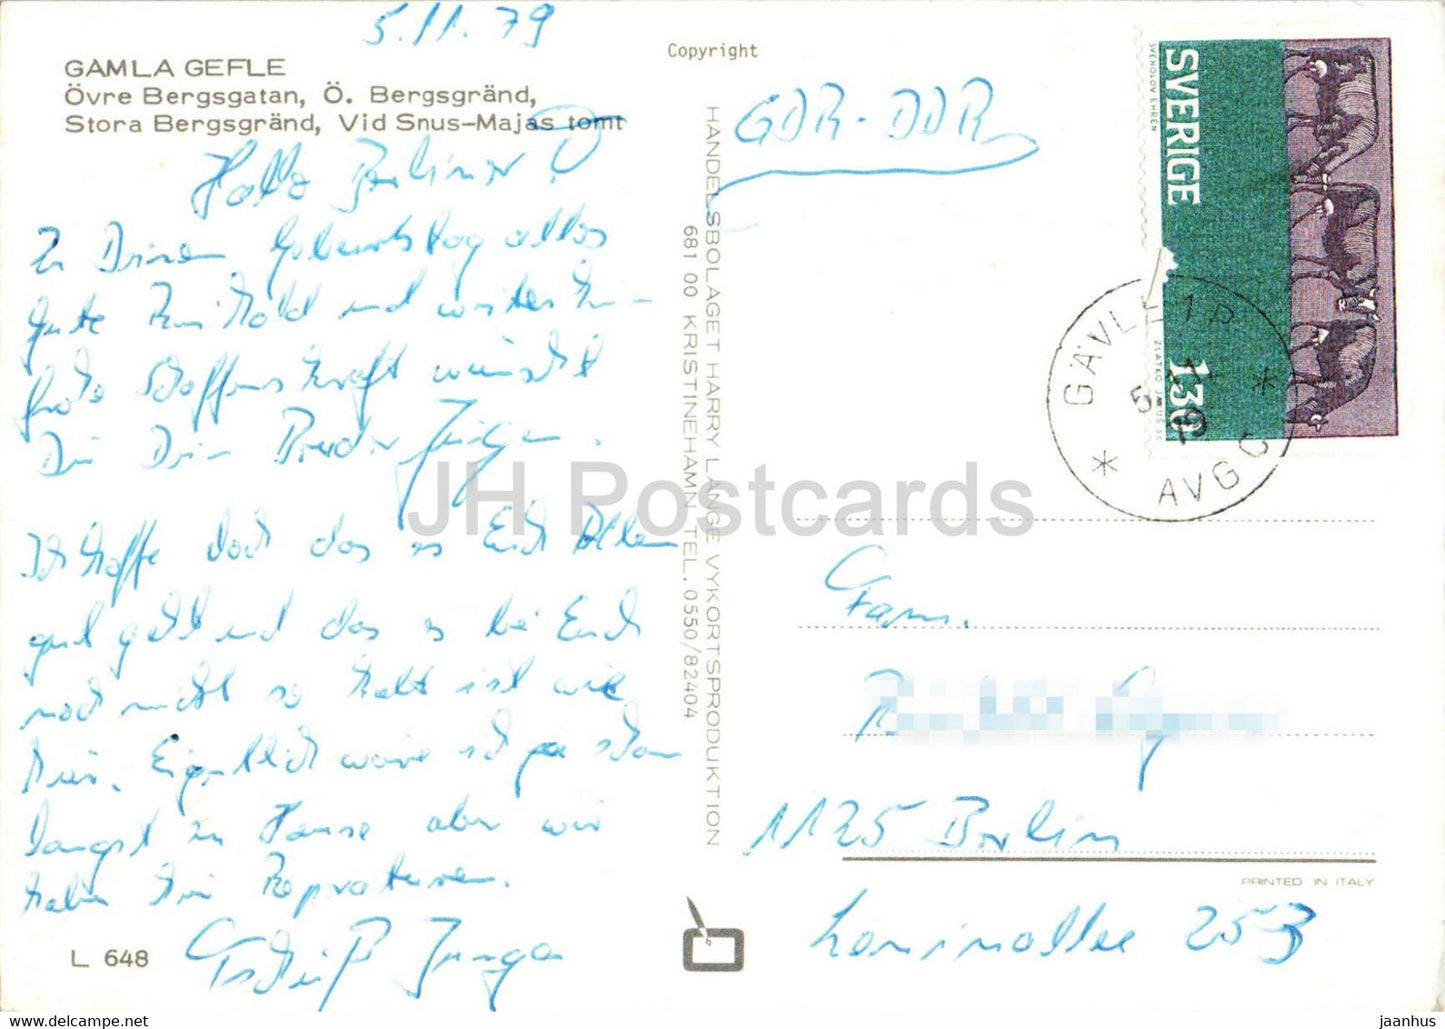 5.11.79
GAMLA GEFLE
Övre Bergsgatan, Ö. Bergsgränd,
Stora Bergsgränd, Vid Snus-Majas tomt
Hallo Berliner!
Zu Deinem Geburtstag alles
Gute und weiterhin
frohe Schaffenskraft wünscht
Dir Dein Bruder Jürgen.
Ich hoffe doch das es Euch Allen
gut geht und das es bei Euch
noch nicht so kalt ist wie
hier. Eigentlich wäre ich ja schon
längst zu Hause aber wir
haben hier Reparaturen.
L 648
Copyright
HANDELSBOLAGET HARRY LANGE VYKORTSPRODUKTION
681 00 KRISTINEHAMN TEL. 0550/82404
GDR-DDR
SVERIGE
SVENOLOV EHRÉN
130
GÄVLE 1
AVG
Fam.
1125 Berlin
Leninallee 253
PRINTED IN ITALY
JH Postcards
hippostcard.com
jaanhus